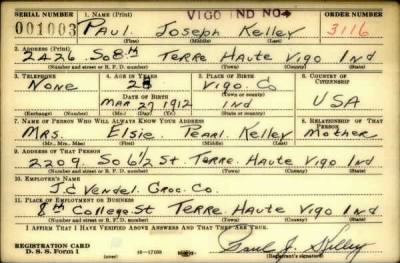 VIGO IND NO 4
SERIAL NUMBER 1. NAME (Print) ORDER NUMBER
001003 PAUL JOSEPH KELLEY 3116
(First) (Middle) (Last)
2. ADDRESS (Print)
2426 So 8th TERRE HAUTE VIGO IND
(Number and street or R. F. D. number) (Town) (County) (State)
3. TELEPHONE 4. AGE IN YEARS 5. PLACE OF BIRTH 6. COUNTRY OF CITIZENSHIP
NONE 28 VIGO. CO
DATE OF BIRTH (Town or county)
MAR 27 1912 IND USA
(Exchange) (Number) (Mo.) (Day) (Yr.) (State or country)
7. NAME OF PERSON WHO WILL ALWAYS KNOW YOUR ADDRESS 8. RELATIONSHIP OF THAT PERSON
MRS. ELSIE PEARL KELLEY MOTHER
(Mr., Mrs., Miss) (First) (Middle) (Last)
9. ADDRESS OF THAT PERSON
2209 So 6 1/2 ST. TERRE. HAUTE VIGO IND
(Number and street or R. F. D. number) (Town) (County) (State)
10. EMPLOYER'S NAME
J.C VENDEL. GROC. CO.
11. PLACE OF EMPLOYMENT OR BUSINESS
8th COLLEGE ST TERRE HAUTE VIGO IND
(Number and street or R. F. D. number) (Town) (County) (State)
I AFFIRM THAT I HAVE VERIFIED ABOVE ANSWERS AND THAT THEY ARE TRUE.
REGISTRATION CARD
D. S. S. Form 1 (over) 16—17105 Paul J. Kelley
(Registrant's signature)